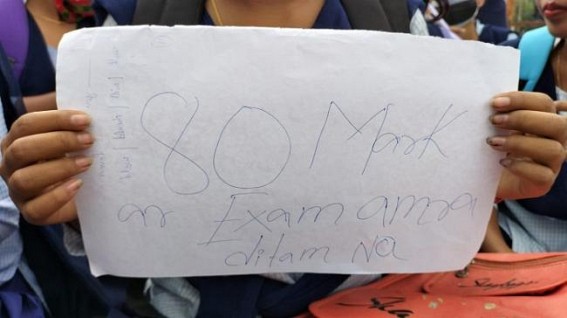 80 Mark
ar Exam amra
ditam Na